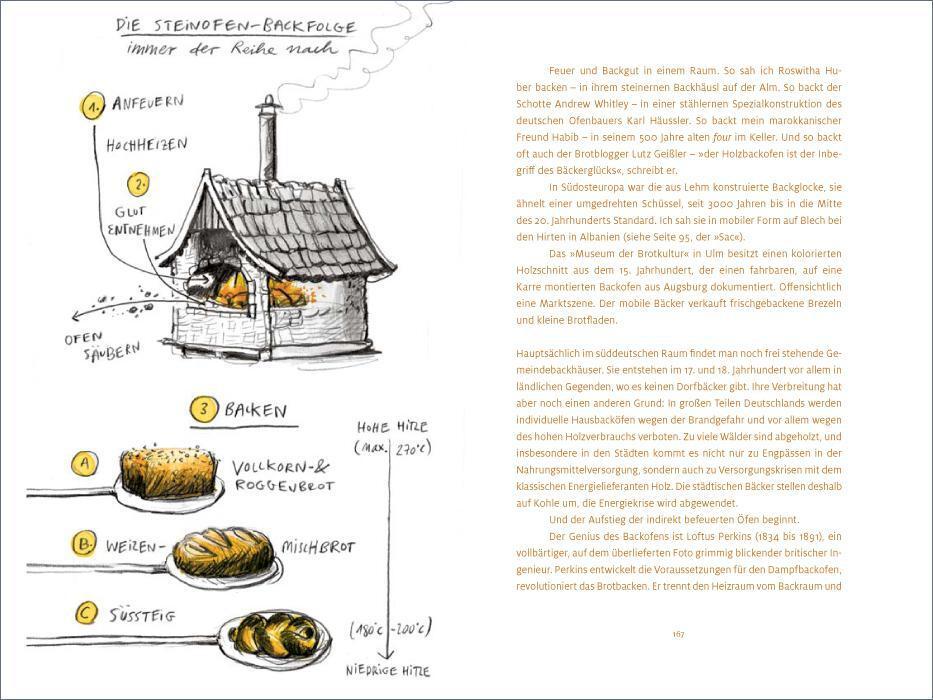 DIE STEINOFEN-BACKFOLGE
immer der Reihe nach
1. ANFEUERN
HOCHHEIZEN
2.
GLUT
ENTNEHMEN
OFEN
SÄUBERN
3 BACKEN
HOHE HITZE
(max. 270°C)
A VOLLKORN-&
ROGGENBROT
B. WEIZEN- MISCHBROT
C SÜSSTEIG
(180°C -200°C)
NIEDRIGE HITZE
Feuer und Backgut in einem Raum. So sah ich Roswitha Hu-
ber backen – in ihrem steinernen Backhäusl auf der Alm. So backt der
Schotte Andrew Whitley – in einer stählernen Spezialkonstruktion des
deutschen Ofenbauers Karl Häussler. So backt mein marokkanischer
Freund Habib – in seinem 500 Jahre alten four im Keller. Und so backt
oft auch der Brotblogger Lutz Geißler – »der Holzbackofen ist der Inbe-
griff des Bäckerglücks«, schreibt er.
In Südosteuropa war die aus Lehm konstruierte Backglocke, sie
ähnelt einer umgedrehten Schüssel, seit 3000 Jahren bis in die Mitte
des 20. Jahrhunderts Standard. Ich sah sie in mobiler Form auf Blech bei
den Hirten in Albanien (siehe Seite 95, der »Sac«).
Das »Museum der Brotkultur« in Ulm besitzt einen kolorierten
Holzschnitt aus dem 15. Jahrhundert, der einen fahrbaren, auf eine
Karre montierten Backofen aus Augsburg dokumentiert. Offensichtlich
eine Marktszene. Der mobile Bäcker verkauft frischgebackene Brezeln
und kleine Brotfladen.
Hauptsächlich im süddeutschen Raum findet man noch frei stehende Ge-
meindebackhäuser. Sie entstehen im 17. und 18. Jahrhundert vor allem in
ländlichen Gegenden, wo es keinen Dorfbäcker gibt. Ihre Verbreitung hat
aber noch einen anderen Grund: In großen Teilen Deutschlands werden
individuelle Hausbacköfen wegen der Brandgefahr und vor allem wegen
des hohen Holzverbrauchs verboten. Zu viele Wälder sind abgeholzt, und
insbesondere in den Städten kommt es nicht nur zu Engpässen in der
Nahrungsmittelversorgung, sondern auch zu Versorgungskrisen mit dem
klassischen Energielieferanten Holz. Die städtischen Bäcker stellen deshalb
auf Kohle um, die Energiekrise wird abgewendet.
Und der Aufstieg der indirekt befeuerten Öfen beginnt.
Der Genius des Backofens ist Loftus Perkins (1834 bis 1891), ein
vollbärtiger, auf dem überlieferten Foto grimmig blickender britischer In-
genieur. Perkins entwickelt die Voraussetzungen für den Dampfbackofen,
revolutioniert das Brotbacken. Er trennt den Heizraum vom Backraum und
167